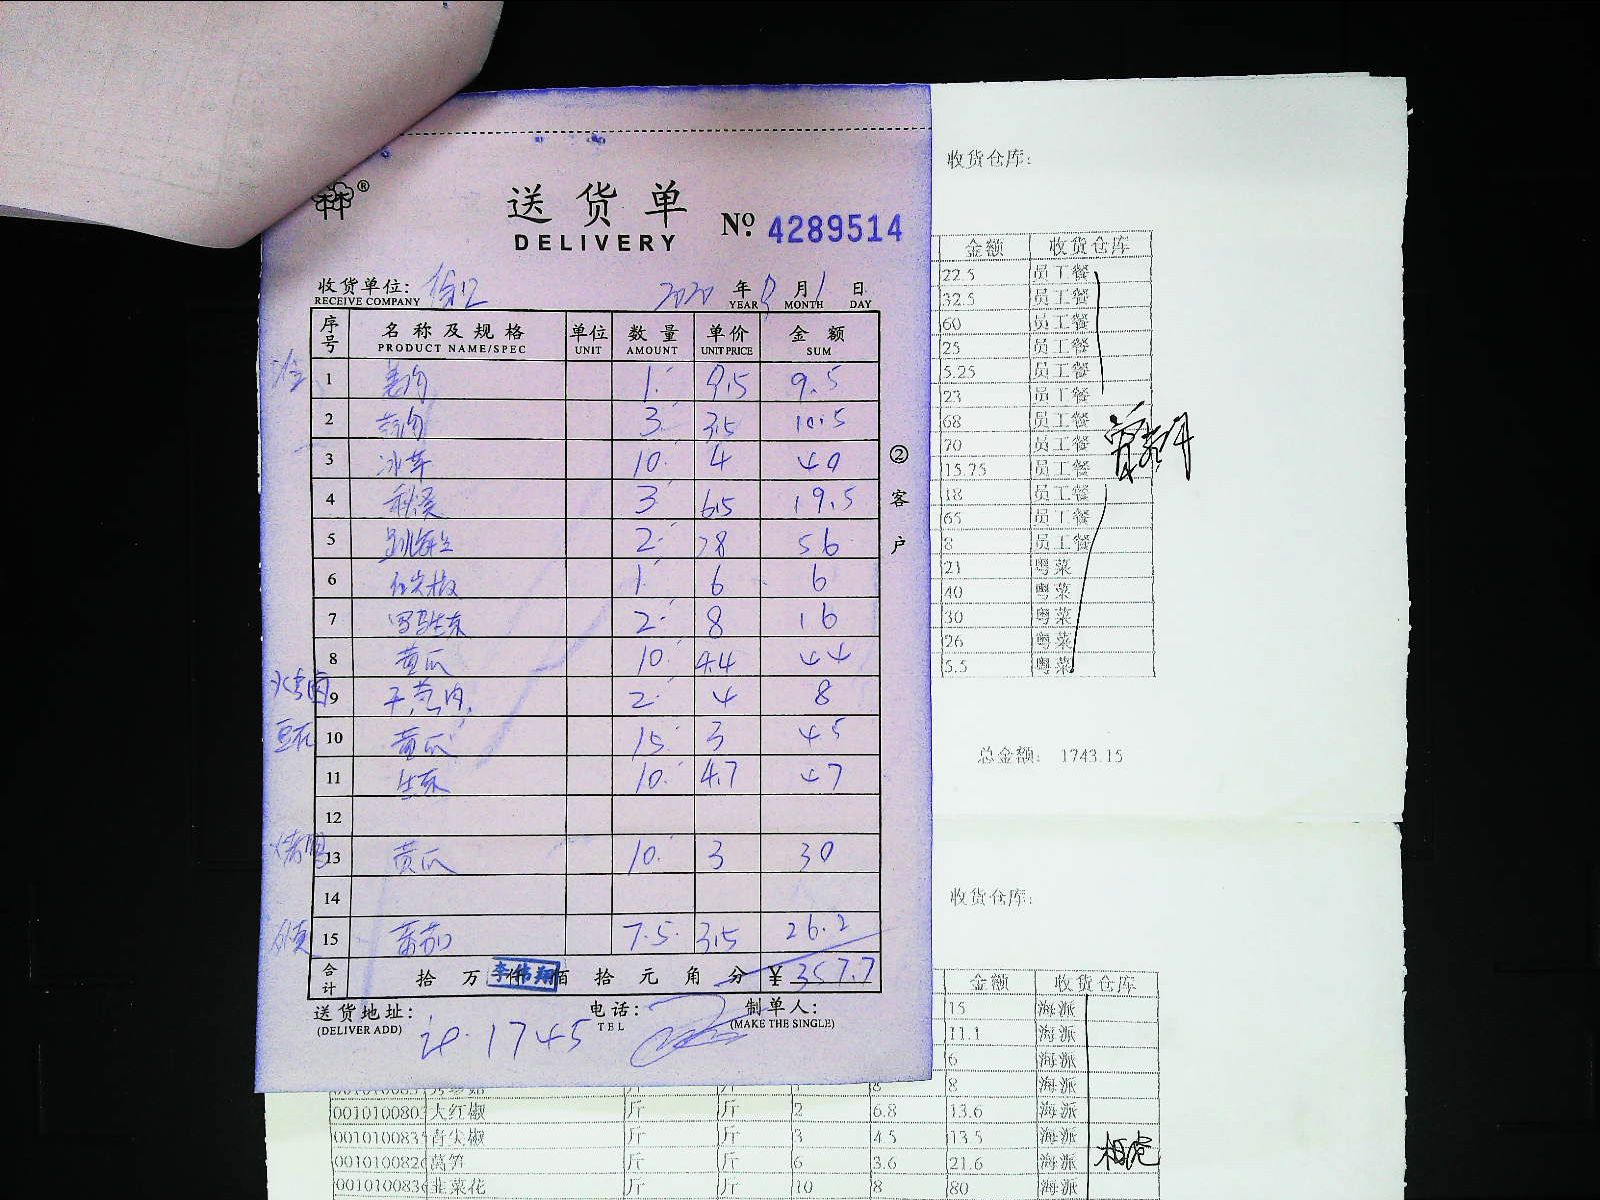 送货单
DELIVERY
№ 4289514
收货单位:
RECEIVE COMPANY
2020 年 8 月 1 日
YEAR MONTH DAY
序号 名称及规格 单位 数量 单价 金额
PRODUCT NAME/SPEC UNIT AMOUNT UNIT PRICE SUM
1 1 9.5 9.5
2 3 3.5 10.5
3 冰草 10 4 40
4 秋葵 3 6.5 19.5
5 2 28 56
6 1 6 6
7 罗马生菜 2 8 16
8 黄瓜 10 4.4 44
9 干葱肉 2 4 8
豆花 10 黄瓜 15 3 45
11 生菜 10 4.7 47
12
烤鸭 13 黄瓜 10 3 30
14
15 番茄 7.5 3.5 26.2
合计 拾 万 仟 佰 拾 元 角 分 ¥ 357.7
李伟翔
送货地址:
(DELIVER ADD)
电话:
TEL
制单人:
(MAKE THE SINGLE)
1745
②客户
收货仓库:
金额 收货仓库
22.5 员工餐
32.5 员工餐
60 员工餐
25 员工餐
5.25 员工餐
23 员工餐
68 员工餐
70 员工餐
15.75 员工餐
18 员工餐
65 员工餐
8 员工餐
21 粤菜
40 粤菜
30 粤菜
26 粤菜
5.5 粤菜
总金额: 1743.15
收货仓库:
金额 收货仓库
15 海派
11.1 海派
6 海派
8 8 海派
001010080 大红椒 斤 斤 2 6.8 13.6 海派
001010083 青尖椒 斤 斤 3 4.5 13.5 海派
001010082 莴笋 斤 斤 6 3.6 21.6 海派
001010083 韭菜花 斤 斤 10 8 80 海派